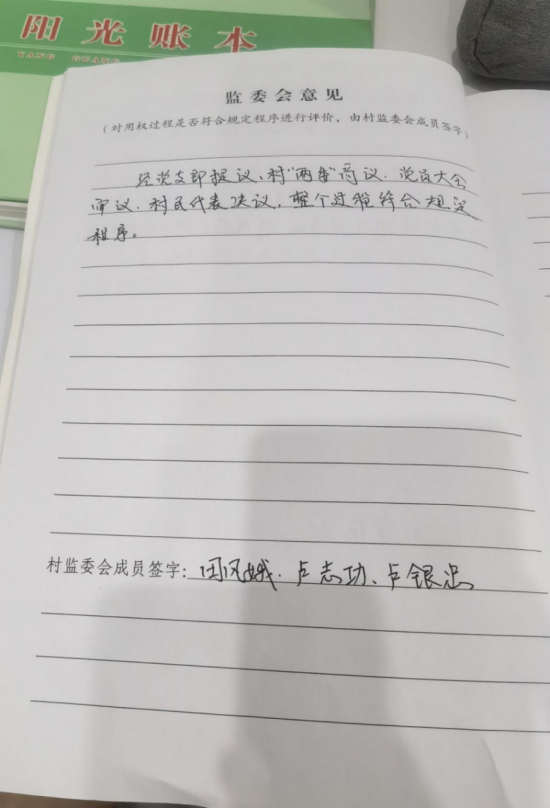 阳光账本
YANG GUANG
监委会意见
(对用权过程是否符合规定程序进行评价，由村监委会成员签字)
经党支部提议、村"两委"商议、党员大会
审议、村民代表决议，整个过程符合规定
程序。
村监委会成员签字：凤娥、卢志功、卢银忠